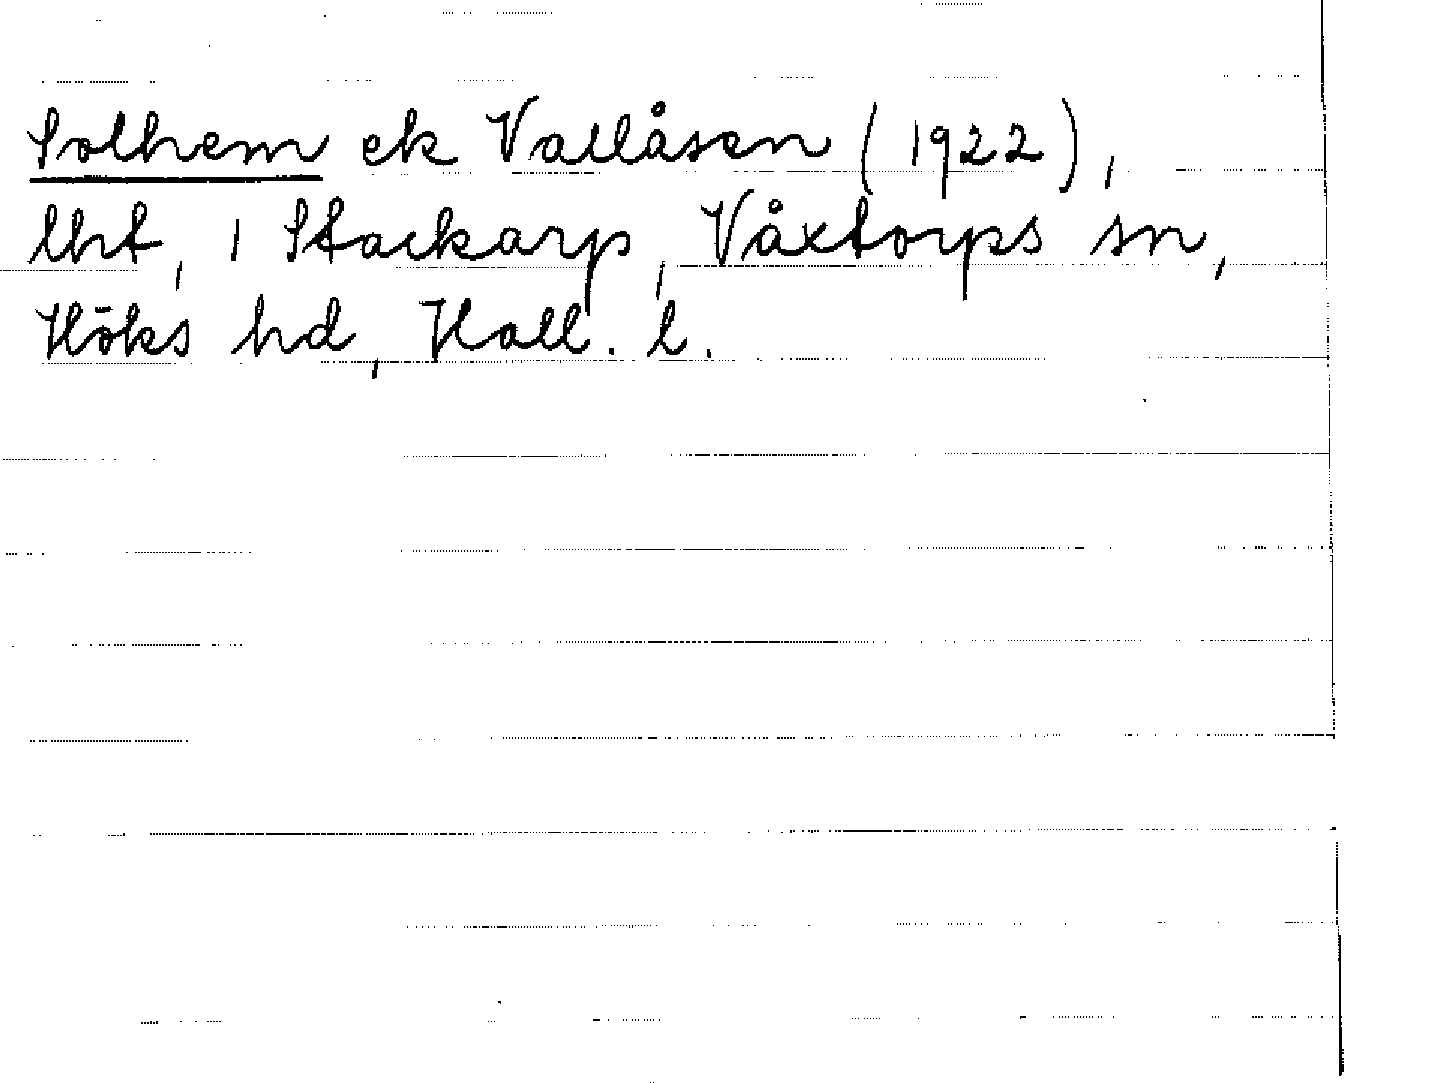 Solhem ek Vallåsen (1922),
lht, i Stackarp, Våxtorps sn,
Höks hd, Hall. l.